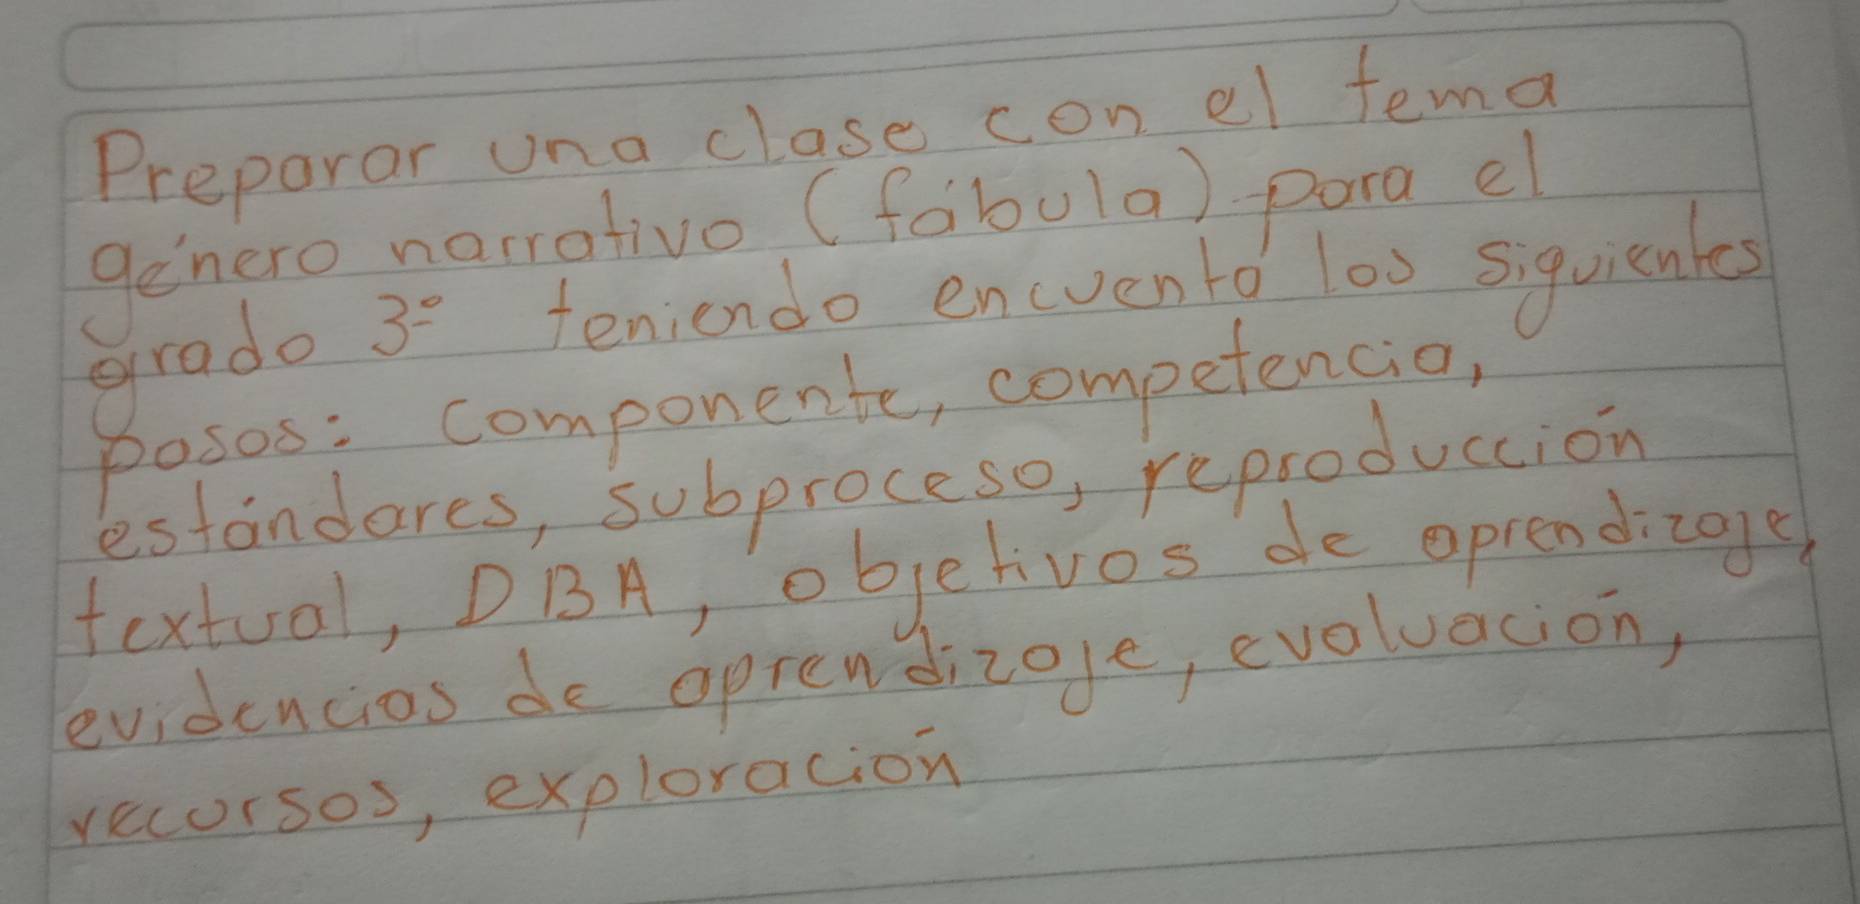 Preparar una clase con el tema
género narrativo (fábula) para el
grado 3º teniendo encuenta los siguientes
pasos: componente, competencia,
estándares, subproceso, reproducción
textual, DBA, objetivos de aprendizaje,
evidencias de aprendizaje, evaluación,
recursos, exploración